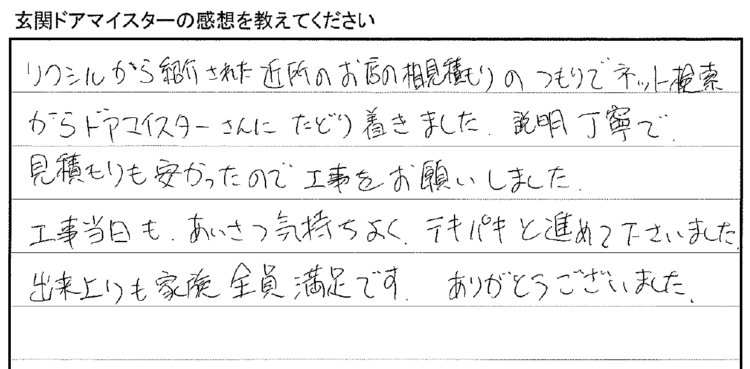 玄関ドアマイスターの感想を教えてください
リクシルから紹介された近所のお店の相見積もりのつもりでネット検索
からドアマイスターさんにたどり着きました。説明丁寧で、
見積もりも安かったので工事をお願いしました。
工事当日も、あいさつ気持ちよく、テキパキと進めて下さいました
出来上りも家険全員満足です。 ありがとうございました。